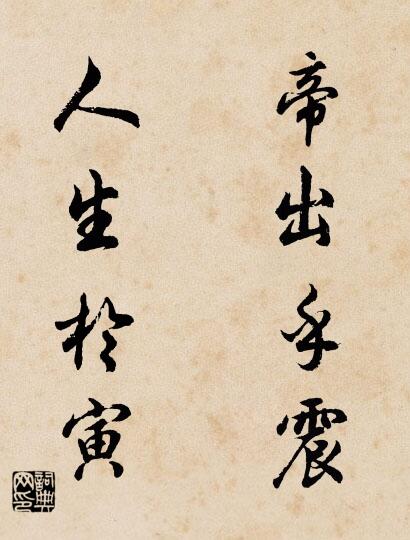 帝出乎震
人生於寅
詞典网印